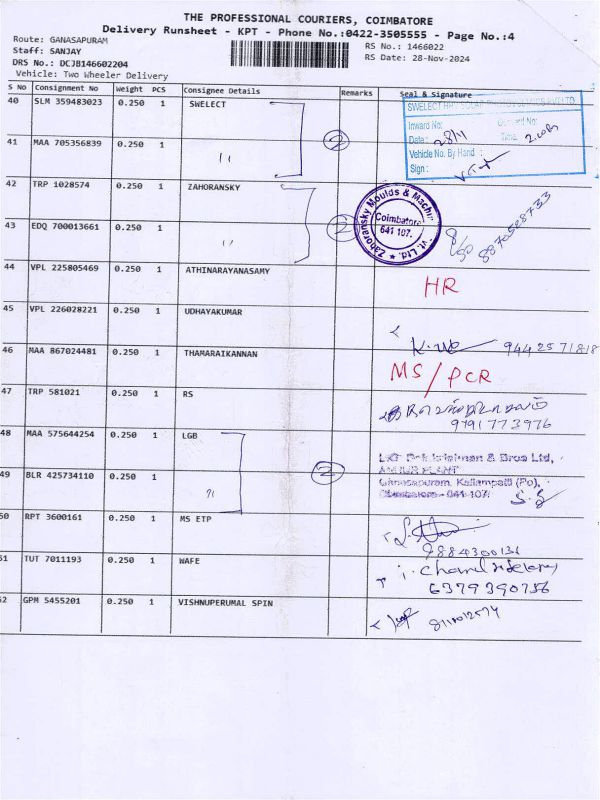 THE PROFESSIONAL COURIERS, COIMBATORE
Delivery Runsheet - KPT - Phone No.:0422-3505555 - Page No.:4
Route: GANASAPURAM
RS No.: 1466022
Staff: SANJAY
RS Date: 28-Nov-2024
DRS No.: DCJB146602204
Vehicle: Two Wheeler Delivery
S No Consignment No Weight PCS Consignee Details Remarks Seal & Signature
40 SLM 359483023 0.250 1 SWELECT
Inward No:
Date: 28/11 Time: 2.00
Vehicle No. By Hand:
Sign:
41 MAA 705356839 0.250 1 11 2
42 TRP 1028574 0.250 1 ZAHORANSKY
Zahoransky Moulds & Machin
Coimbatore
641 107.
vt. Ltd.
43 EDQ 700013661 0.250 1 11 2
44 VPL 225805469 0.250 1 ATHINARAYANASAMY HR
45 VPL 226028221 0.250 1 UDHAYAKUMAR 9442571818
46 MAA 867024481 0.250 1 THAMARAIKANNAN MS/PCR
47 TRP 581021 0.250 1 RS
9791773976
48 MAA 575644254 0.250 1 LGB
& Bros Ltd,
PLANT
Ganasapuram, Kallampatti (Po),
Coimbatore - 641 107.
49 BLR 425734110 0.250 1 11 2
50 RPT 3600161 0.250 1 MS ETP
9884300131
51 TUT 7011193 0.250 1 WAFE
6379390756
52 GPM 5455201 0.250 1 VISHNUPERUMAL SPIN